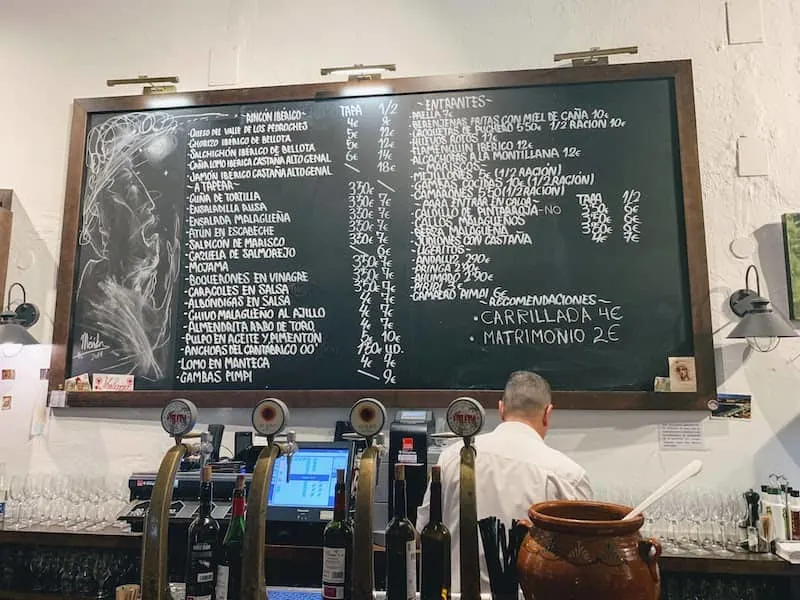 RINCÓN IBÉRICO~ TAPA 1/2
-QUESO DEL VALLE DE LOS PEDROCHES 4€ 9€
-CHORIZO IBÉRICO DE BELLOTA 5€ 12€
-SALCHICHÓN IBÉRICO DE BELLOTA 5€ 12€
-CAÑA LOMO IBÉRICA CASTAÑA ALTO GENAL 6€ 14€
-JAMÓN IBÉRICO CASTAÑA ALTO GENAL 18€
~A TAPEAR~
-CUÑA DE TORTILLA 3'50€ 7€
-ENSALADILLA RUSA 3'50€ 7€
-ENSALADA MALAGUEÑA 3'50€ 7€
-ATÚN EN ESCABECHE 3'50€ 7€
-SALPICÓN DE MARISCO 3'50€ 7€
-CAZUELA DE SALMOREJO
-MOJAMA
-BOQUERONES EN VINAGRE
-CARACOLES EN SALSA
-ALBÓNDIGAS EN SALSA
-CHIVO MALAGUEÑO AL AJILLO
-ALMENDRITA RABO DE TORO
-PULPO EN ACEITE Y PIMENTÓN
-ANCHOAS DEL CANTÁBRICO 00 UD.
-LOMO EN MANTECA
-GAMBAS PIMPI 9€
~ENTRANTES~
-PAELLA 7€
-BERENJENAS FRITAS CON MIEL DE CAÑA 10€
-CROQUETAS DE PUCHERO 6'50€ 1/2 RACIÓN 10€
-HUEVOS ROTOS
IBÉRICO 12€
-ALCACHOFAS A LA MONTILLANA 12€
-MEJILLONES 5€ (1/2 RACIÓN)
-GAMBAS COCIDAS 10€ (1/2 RACIÓN)
-CAMARONES (1/2 RACIÓN)
~PARA ENTRAR EN CALOR~ TAPA 1/2
-CALDILLO DE PINTARROJA-NO
-CALLOS MALAGUEÑOS
-BERZA MALAGUEÑA
CON CASTAÑA 4€ 7€
~LIGERITOS~
-ANDALUZ 2'90€
-PRINGÁ 2'90€
-AHUMADO 2'90€
-PIRIPI 3€
-CAMPERO PIMPI 6€
~RECOMENDACIONES~
• CARRILLADA 4€
• MATRIMONIO 2€